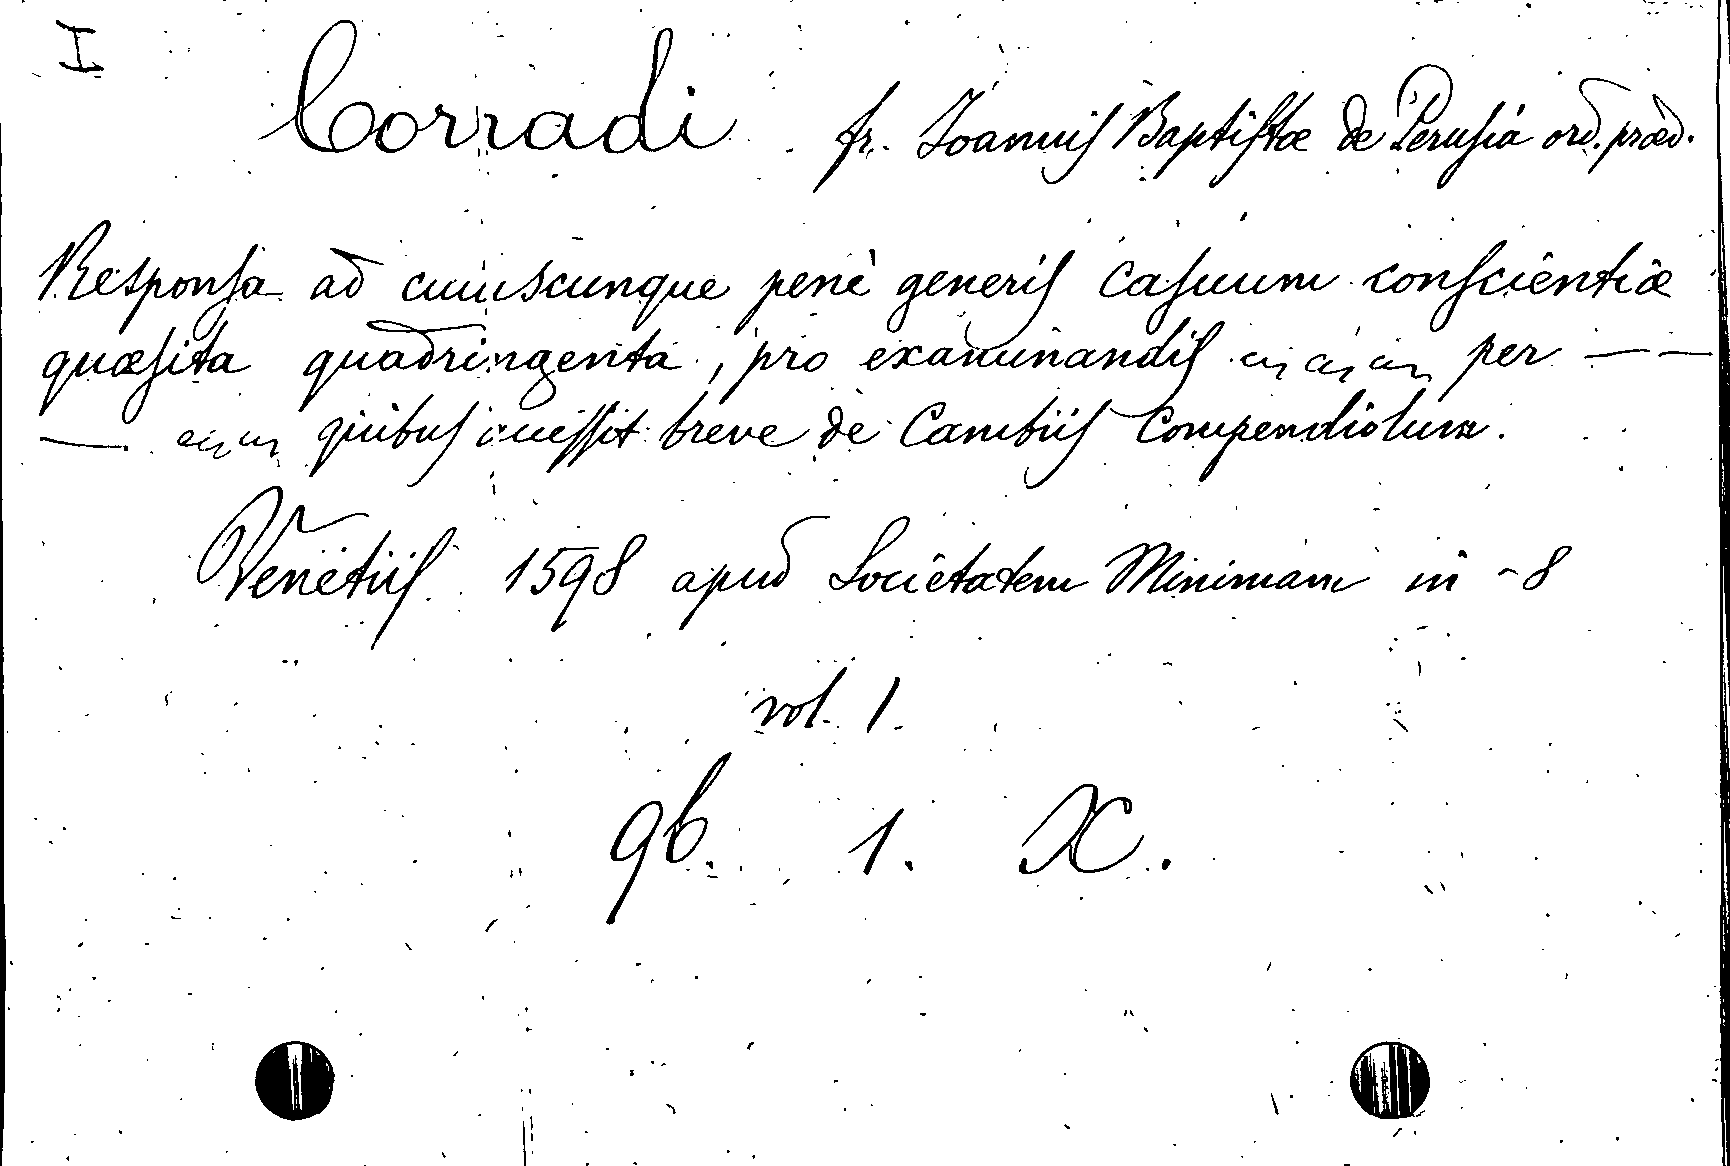 I
Corradi fr. Joannis Baptistæ de Perusia ord. præd.
Responsa ad cuiuscunque penè generis casuum conscientiæ
quæsita quadringenta, pro examinandis per — —
— quibus iniessit breve de Cambiis Compendiolum.
Venetiis 1598 apud Societatem Minimam in -8
vol. 1.
9b. 1. X.